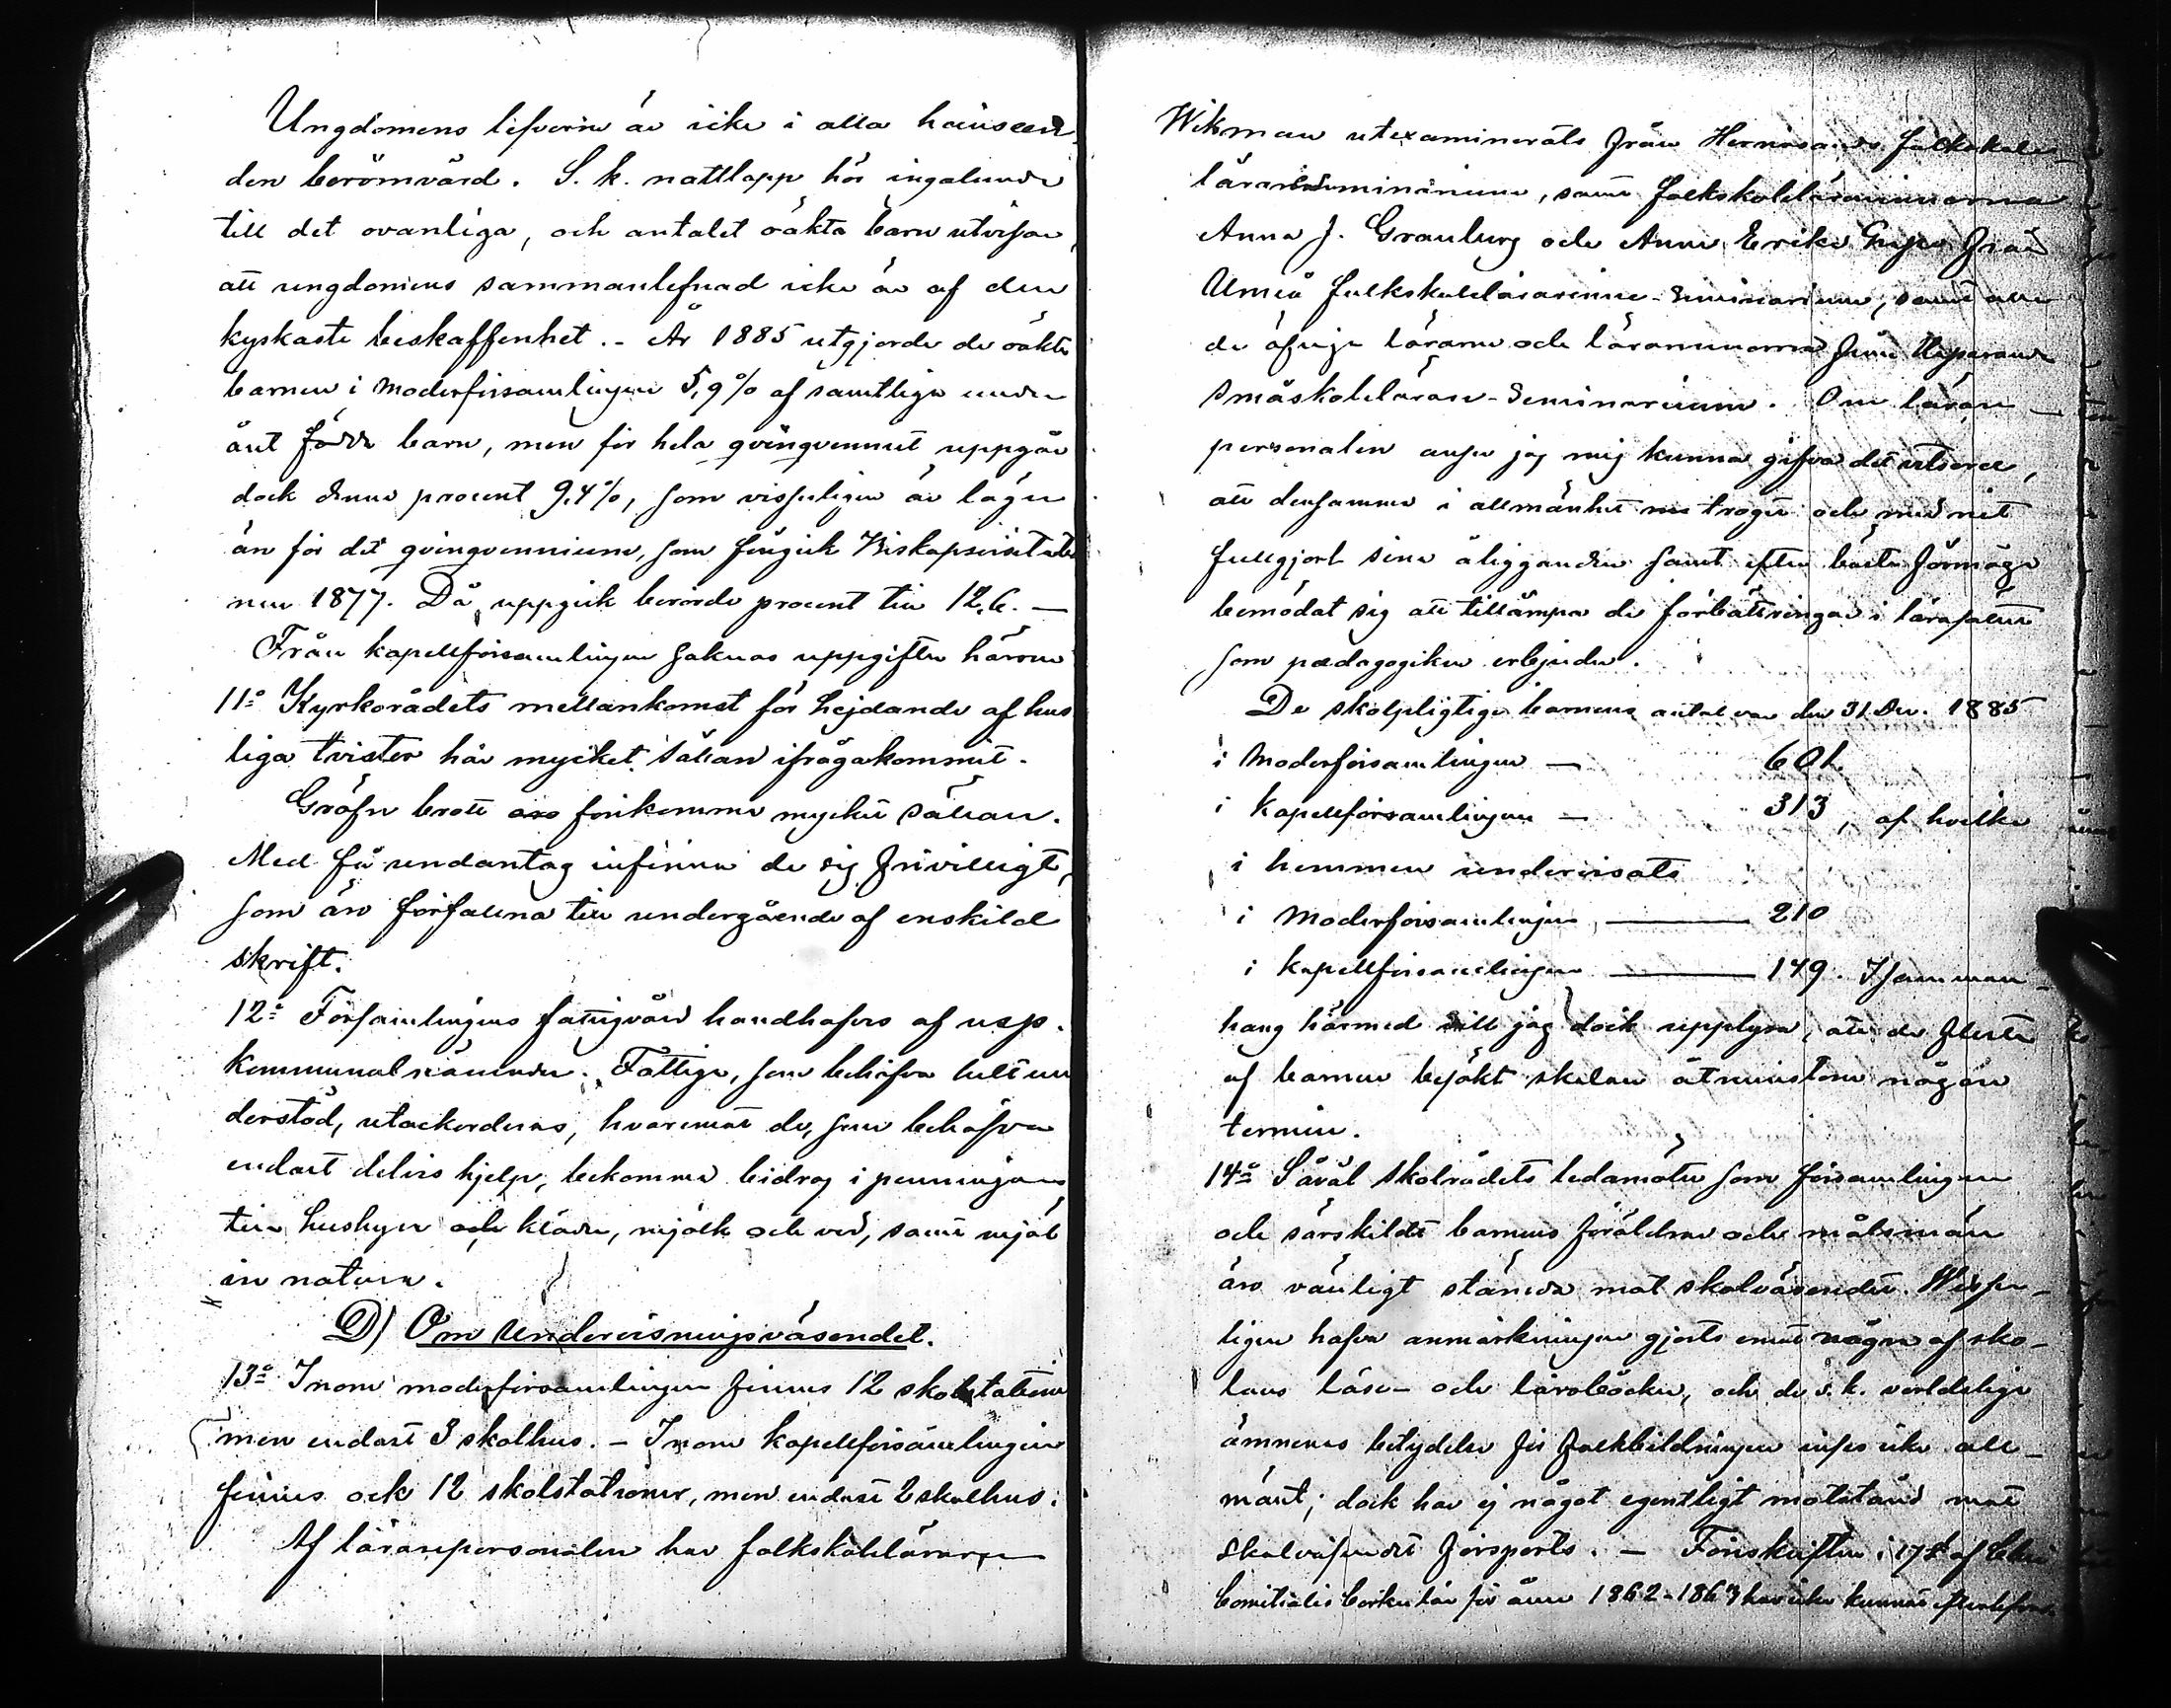 Ungdomens lefverne är icke i alla hänseen-
den berömvärd. S. k. nattlopp hör ingalunda
till det ovanliga, och antalet oäkta barn utvisar,
att ungdomens sammanlefnad icke är af den
kyskaste beskaffenhet. - År 1885 utgjorde de oäkta
barnen i moderförsamlingen 5,9% af samtliga under
året födda barn, men för hela qvinqvenniet uppgår
dock denna procent 9.4%, som visserligen är lägre
än för det qvinqvennium, som föregick Biskopsvisitatio
nen 1877. Då uppgick berörde procent till 12,6. —
Från kapellförsamlingen saknas uppgifter härom
11:o Kyrkorådets mellankomst för hejdande af hus
liga tvister har mycket sällan ifrågakommit.
Gröfre brott förekomma mycket sällan.
Med få undantag infinna de sig frivilligt,
som äro förfallna till undergående af enskild
skrift.
12:o Församlingens fattigvård handhafves af resp.
kommunalnämnder. Fattige, som behöfva helt un
derstöd, utackorderas, hvaremot de, som behöfva
endast delvis hjelp, bekomma bidrag i penningar
till hushyra och kläder, mjölk och ved, samt mjöl
in natura.
D) Om Undervisningsväsendet.
13:o Inom moderförsamlingen finnes 12 skolstationer
men endast 3 skolhus. - Inom kapellförsamlingen
finnes ock 12 skolstationer, men endast 2 skolhus.
Af lärarepersonalen har folkskolläraren
Wikman utexaminerats från Hernösands folkskole-
lärareseminarium, samt folkskollärarinnorna
Anna J. Granberg och Anna Erika från
Umeå folkskollärarinne-Seminarium, samt alla
de öfriga lärarne och lärarinnorna från Haparanda
småskollärare-Seminarium. Om lärare-
personalen anser jag mig kunna gifva det vitsord,
att densamma i allmänhet troget och med nit
fullgjort sina åligganden samt efter bästa förmåga
bemödat sig att tillämpa de förbättringar i lärosätt
som pædagogiken erbjuder.
De skolpligtiga barnens antal var den 31 Dec. 1885
i Moderförsamlingen — 601.
i Kapellförsamlingen — 313, af hvilka
i hemmen undervisats
i Moderförsamlingen, — 210
i kapellförsamlingen — 149. I samman-
hang härmed vill jag dock upplysa, att de flesta
af barnen besökt skolan åtminstone någon
termin.
14:o Såväl skolrådets ledamöter som församlingen
och särskildt barnens föräldrar och målsmän
äro vänligt stämda mot skolväsendet. Visser-
ligen hafva anmärkningar gjorts emot några af sko-
lans läse- och läroböcker, och de s. k. verldsliga
ämnenas betydelse för folkbildningen inses icke all-
mänt; dock har ej något egentligt motstånd mot
skolväsendet försports. — Föreskriften i 17 § af
Comitialis Cirkulär för åren 1862-1863 har icke kunnat efterlefvas.